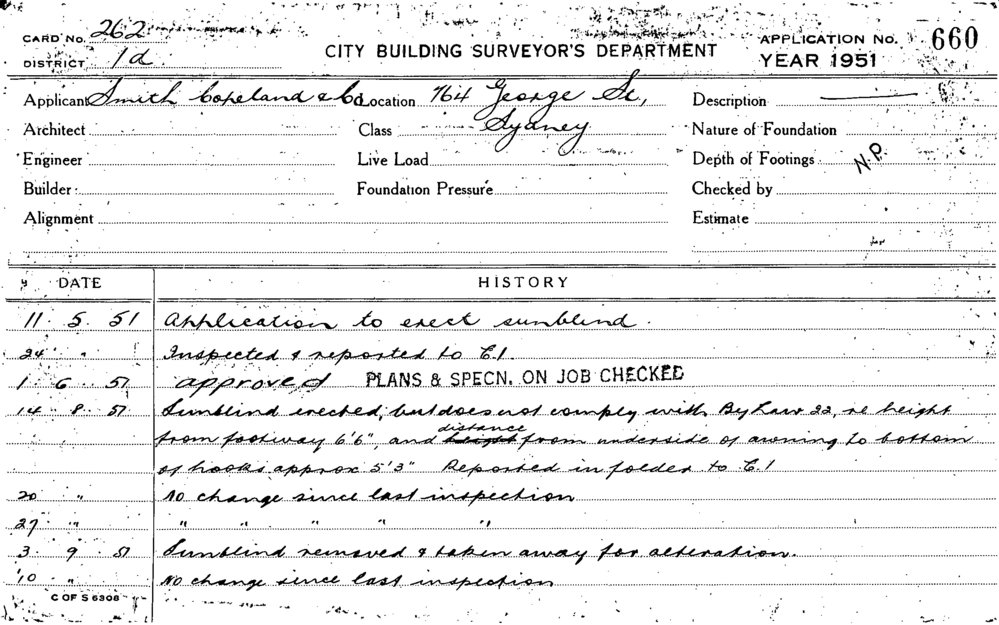 CARD No. 262
DISTRICT 1d
CITY BUILDING SURVEYOR'S DEPARTMENT
APPLICATION No. 660
YEAR 1951
Applicant Smith Copeland & Co Location 764 George St., Description
Architect Class Sydney Nature of Foundation
Engineer Live Load Depth of Footings N.P.
Builder Foundation Pressure Checked by
Alignment Estimate
DATE HISTORY
11. 5. 51 Application to erect sunblind.
24 " Inspected & reported to C.I.
1 6 51 approved PLANS & SPECN. ON JOB CHECKED
14 8 51 Sunblind erected, but does not comply with By Law 22, re height
from footway 6'6", and height distance from underside of awning to bottom
of hooks approx 5'3" Reported in folder to C.I
20 " No change since last inspection
27 " " " " " "
3 9 51 Sunblind removed & taken away for alteration.
10 " No change since last inspection
C OF S 6306